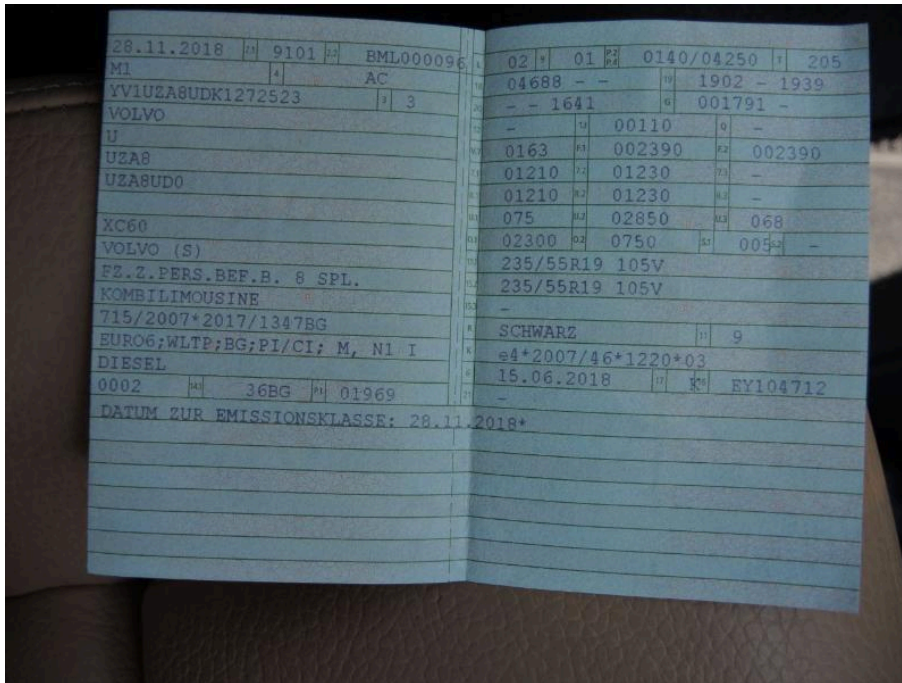 28.11.2018 2.1 9101 2.2 BML000096
M1 4 AC
YV1UZA8UDK1272523 3 3
VOLVO
U
UZA8
UZA8UD0
XC60
VOLVO (S)
FZ.Z.PERS.BEF.B. 8 SPL.
KOMBILIMOUSINE
715/2007*2017/1347BG
EURO6;WLTP;BG;PI/CI; M, N1 I
DIESEL
0002 14.1 36BG P.1 01969
DATUM ZUR EMISSIONSKLASSE: 28.11.2018*
L 02 9 01 P.2 P.4 0140/04250 T 205
18 04688 - - 19 1902 - 1939
20 - - 1641 G 001791 -
12 - 13 00110 Q -
V.7 0163 F.1 002390 F.2 002390
7.1 01210 7.2 01230 7.3 -
8.1 01210 8.2 01230 8.3 -
U.1 075 U.2 02850 U.3 068
O.1 02300 O.2 0750 S.1 005 S.2 -
15.1 235/55R19 105V
15.2 235/55R19 105V
15.3 -
R SCHWARZ 11 9
K e4*2007/46*1220*03
6 15.06.2018 17 K 16 EY104712
21 -